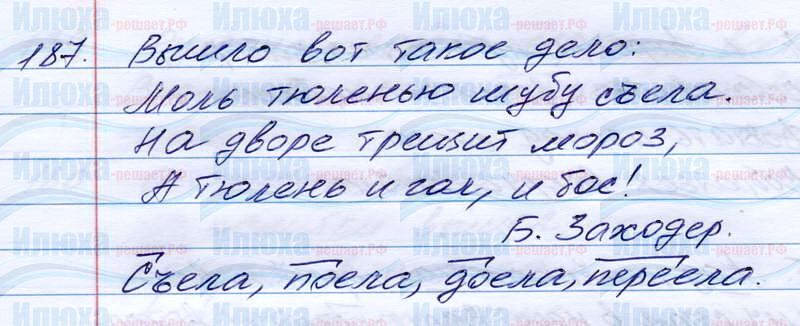 187. Вышло вот такое дело:
Моль тюленью шубу съела.
На дворе трещит мороз,
А тюлень и гол, и бос!
Б. Заходер.
Съела, поела, доела, переела.
Илюха -решает.РФ